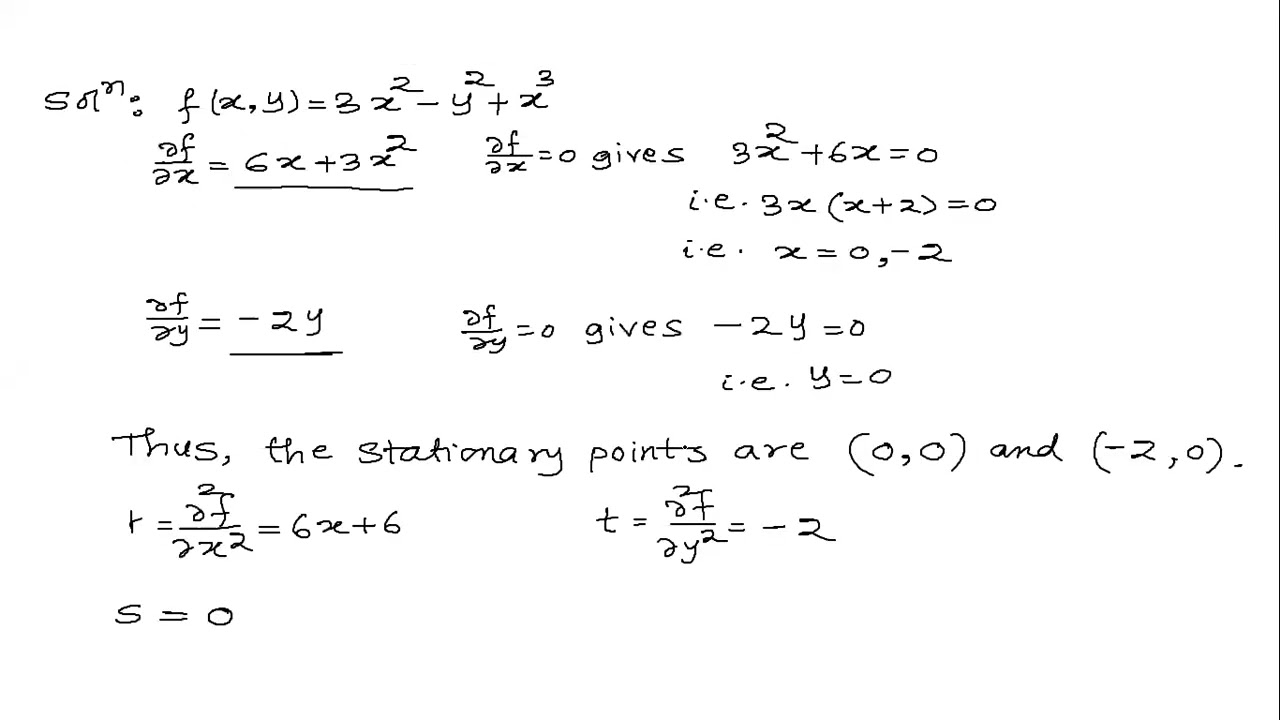 Solⁿ: f(x,y)=3x²-y²+x³
∂f/∂x = 6x+3x² ∂f/∂x=0 gives 3x²+6x=0
i.e. 3x(x+2)=0
i.e. x=0,-2
∂f/∂y = -2y ∂f/∂y=0 gives -2y=0
i.e. y=0
Thus, the stationary points are (0,0) and (-2,0).
r=∂²f/∂x²=6x+6 t=∂²f/∂y²=-2
s=0